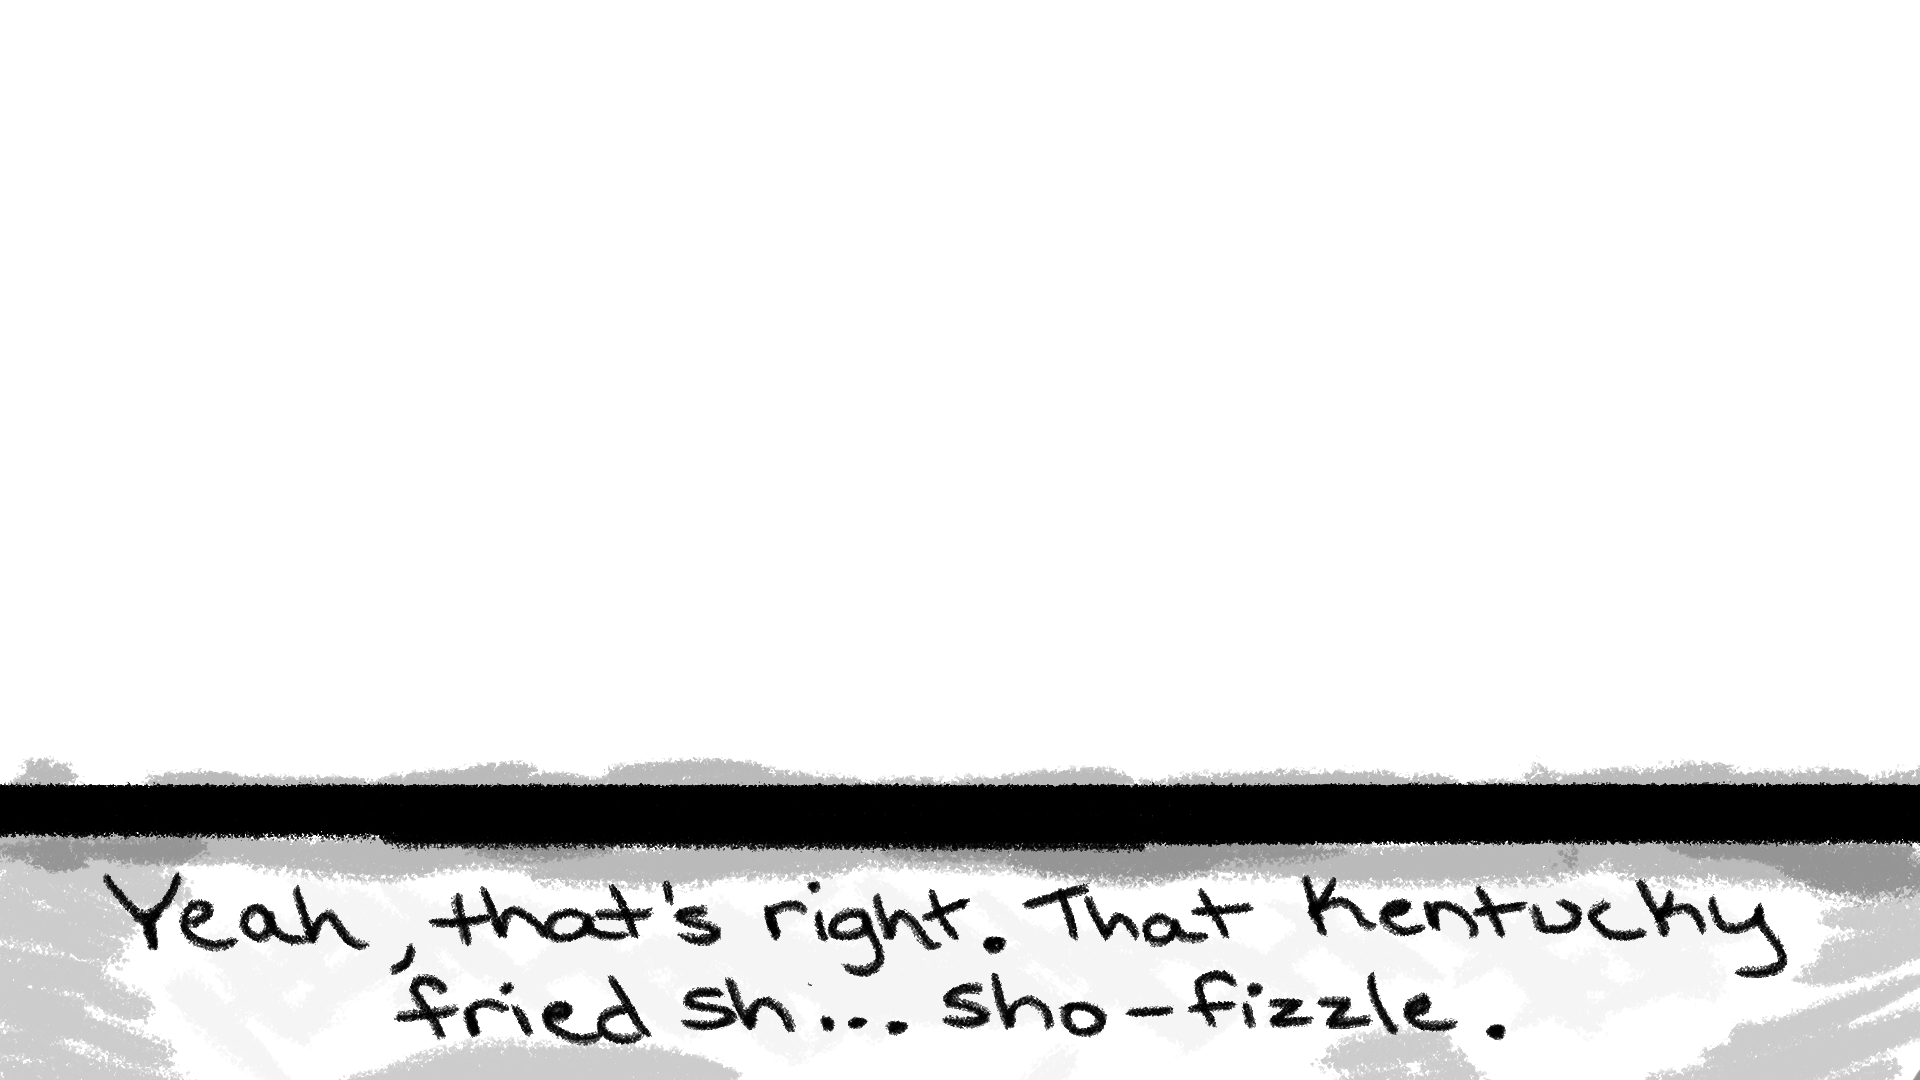 Yeah, that's right. That Kentucky
fried sh... sho-fizzle.